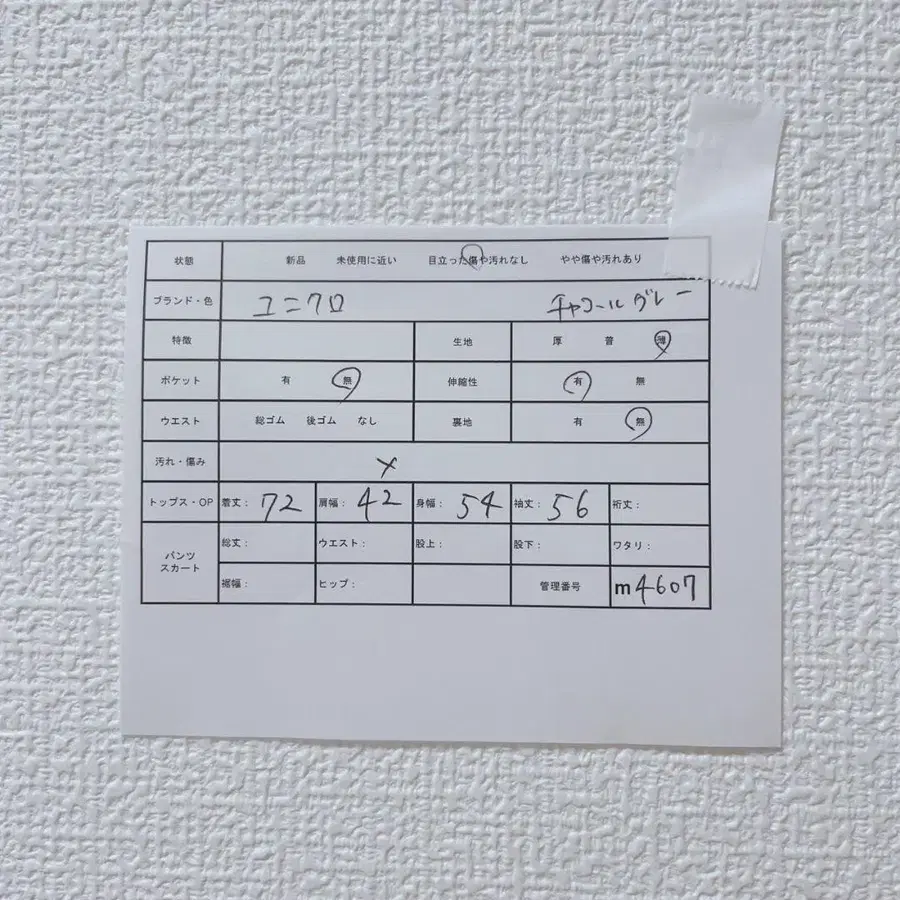 状態 新品 未使用に近い 目立った傷や汚れなし やや傷や汚れあり
ブランド・色 ユニクロ チャコールグレー
特徴 生地 厚 普 薄
ポケット 有 無 伸縮性 有 無
ウエスト 総ゴム 後ゴム なし 裏地 有 無
汚れ・傷み ×
トップス・OP 着丈: 72 肩幅: 42 身幅: 54 袖丈: 56 裄丈:
パンツ スカート 総丈: ウエスト: 股上: 股下: ワタリ:
裾幅: ヒップ: 管理番号 m4607